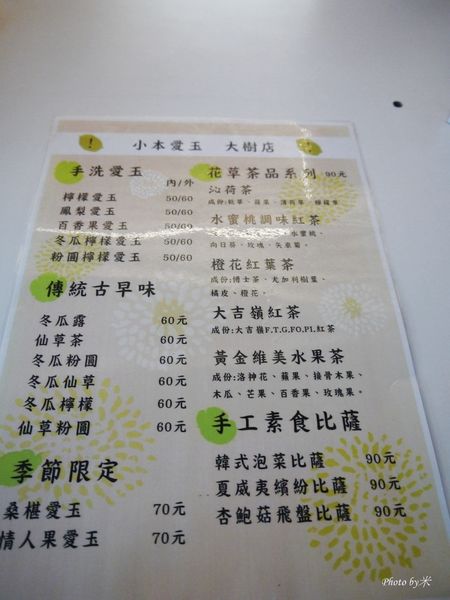 小本愛玉 大樹店
手洗愛玉
內/外
檸檬愛玉 50/60
鳳梨愛玉 50/60
百香果愛玉 50/60
冬瓜檸檬愛玉 50/60
粉圓檸檬愛玉 50/60
傳統古早味
冬瓜露 60元
仙草茶 60元
冬瓜粉圓 60元
冬瓜仙草 60元
冬瓜檸檬 60元
仙草粉圓 60元
季節限定
桑椹愛玉 70元
情人果愛玉 70元
花草茶品系列 90元
沁荷茶
水蜜桃調味紅茶
水蜜桃、
向日葵、玫瑰、矢車菊。
橙花紅葉茶
成份:博士茶、尤加利樹葉、
橘皮、橙花。
大吉嶺紅茶
成份:大吉嶺F.T.G.FO.P1.紅茶
黃金維美水果茶
成份:洛神花、蘋果、接骨木果、
木瓜、芒果、百香果、玫瑰果。
手工素食比薩
韓式泡菜比薩 90元
夏威夷繽紛比薩 90元
杏鮑菇飛盤比薩 90元
Photo by米